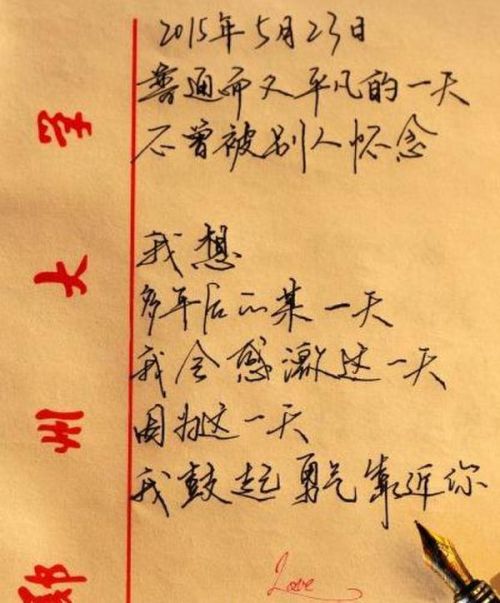 2015年5月23日
普通而又平凡的一天
不曾被别人怀念
我想
多年后的某一天
我会感激这一天
因为这一天
我鼓起勇气靠近你
Love
郑州大学